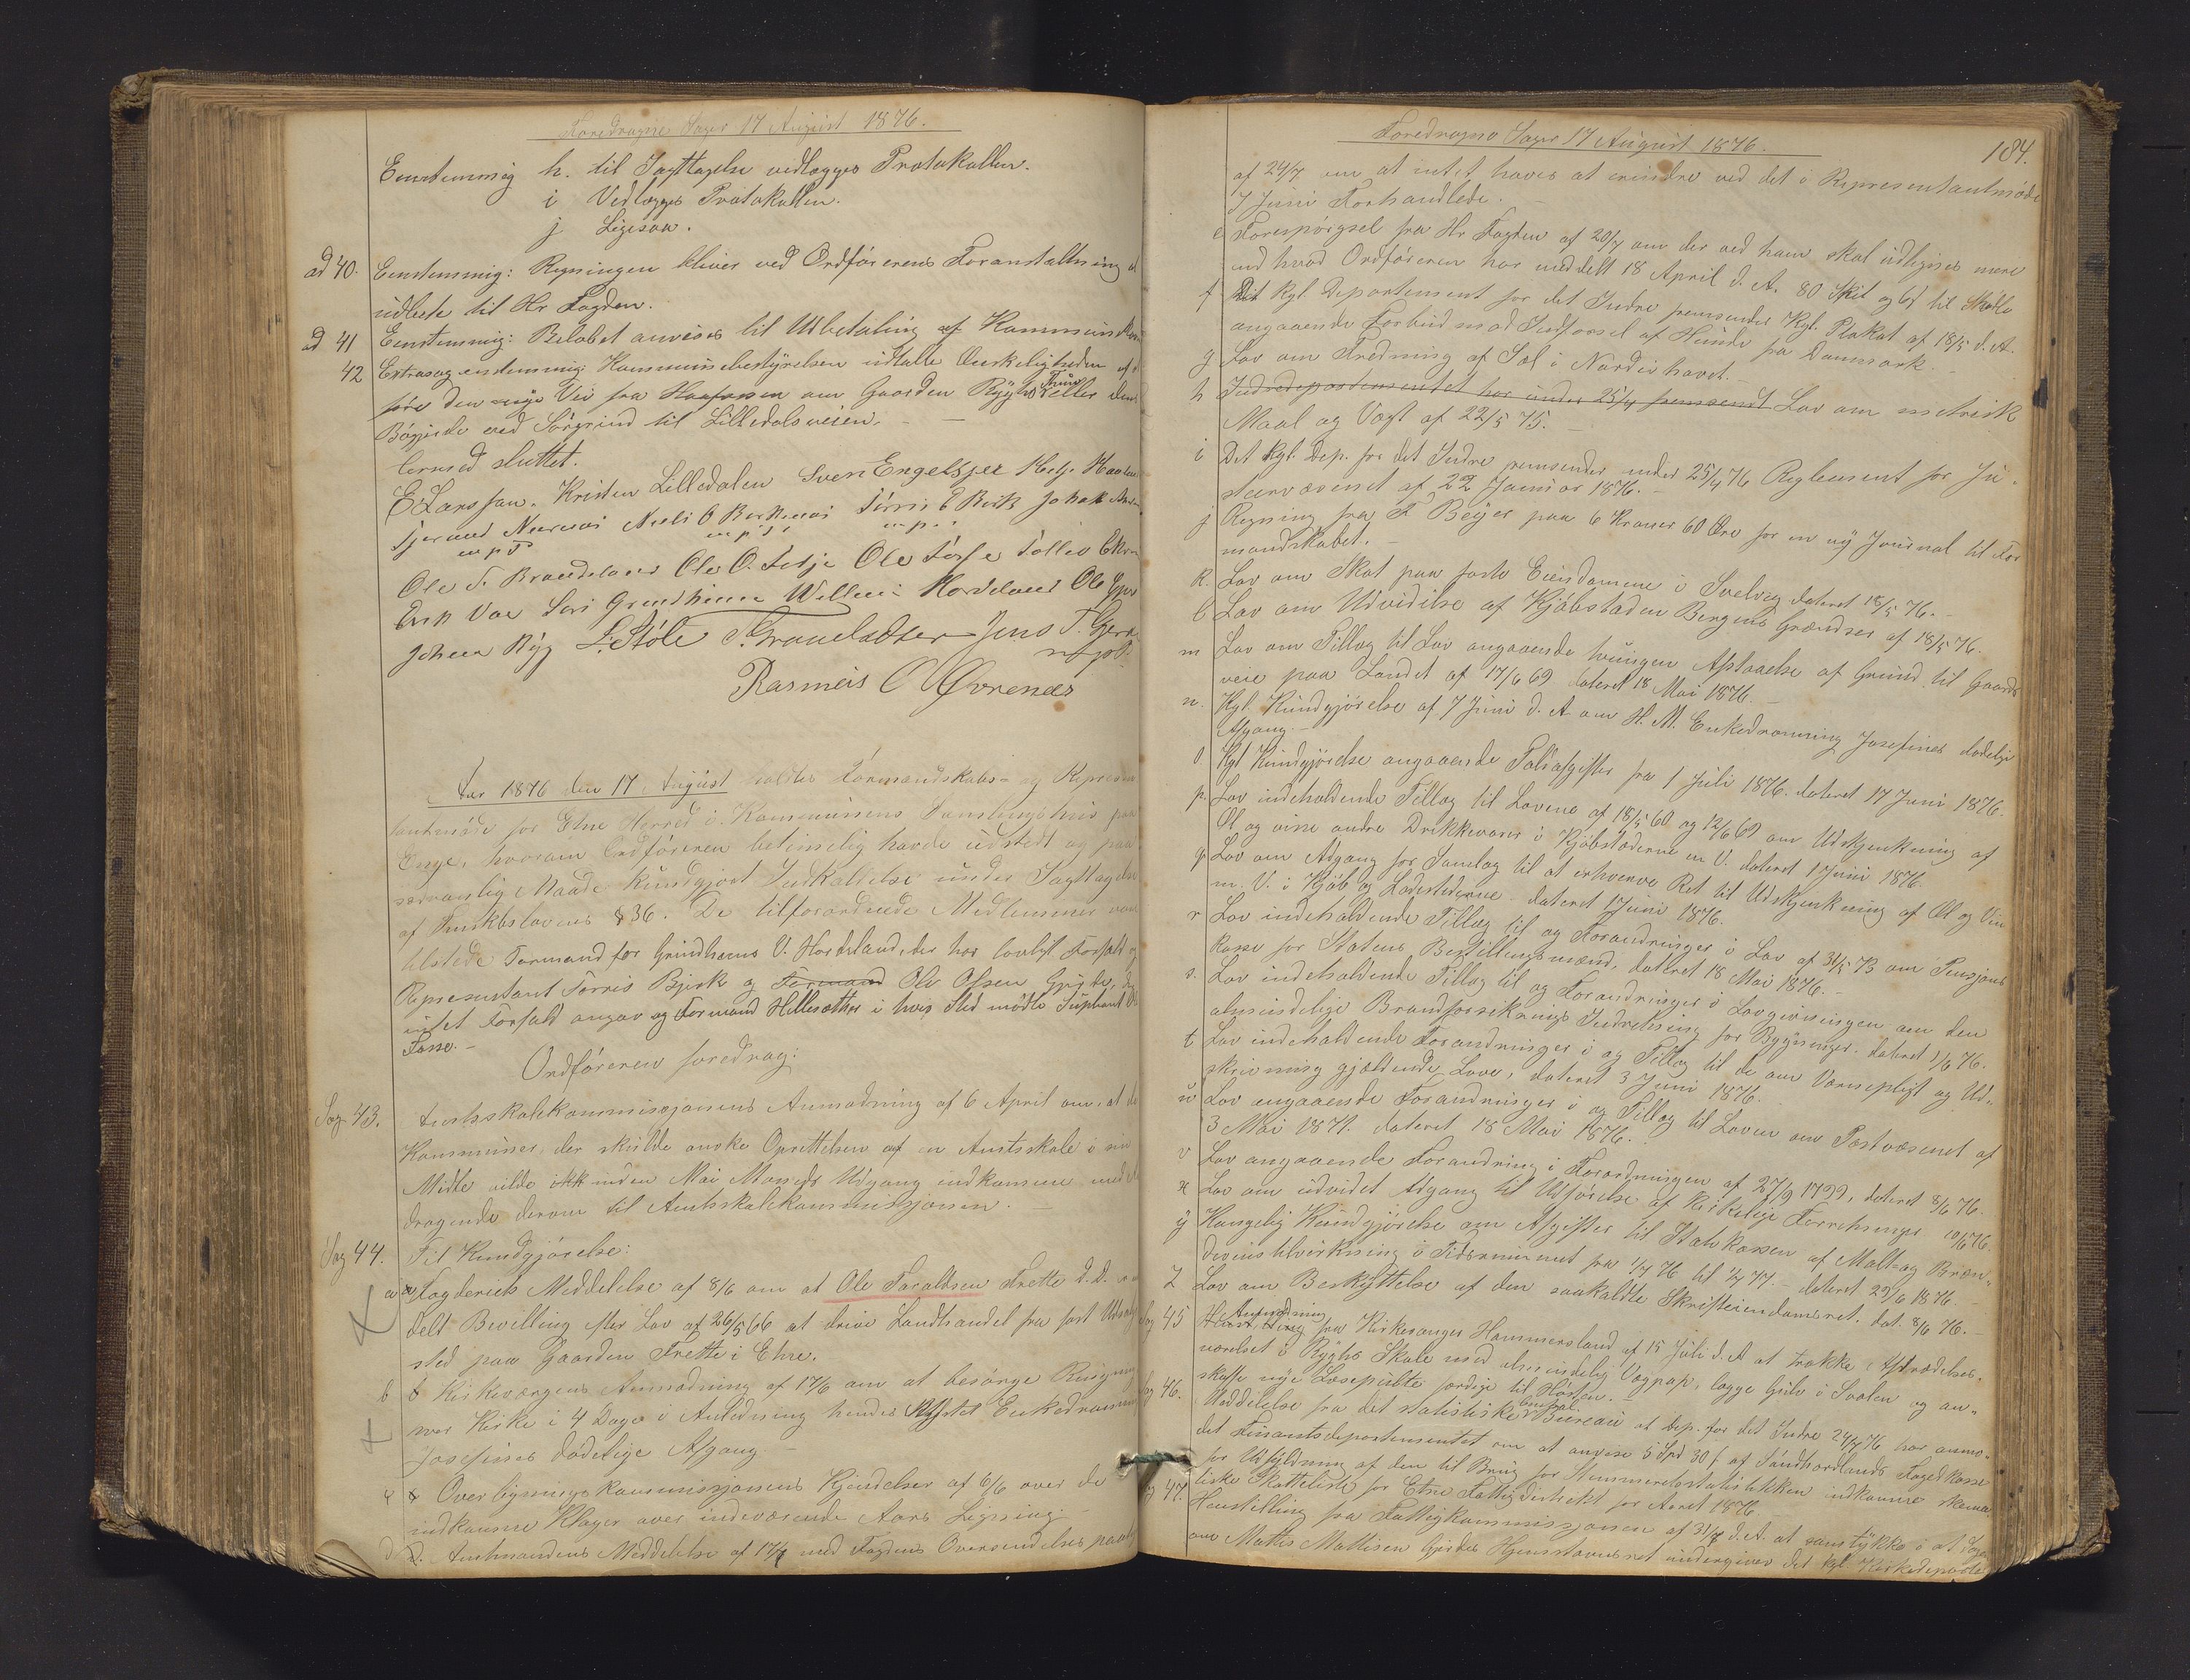 Foredragne Sager 17 August 1876.
Eenstemmig h. til Iagttagelse vedlægges Protokollen.
i Vedlægges Protokollen.
j Ligesaa.
ad 40. Eenstemmig: Regningen bliver ved Ordförerens Foranstaltning at
udbetale til Hr Fogden.
ad 41 Eenstemmig: Belöbet anvises til Udbetaling af Kommunekassen
42 Extrasag eenstemmig: Kommunebestyrelsen udtalte Önskeligheden af at
före den nye Vei fra om Gaarden Rygh eller
ved til Lilledalsveien.
hermed sluttet.
E. Larsson. Kristen Lilledalen Sven Engelsgjer
m p i
Ole T. Brandeland Ole O. Ole Tollev
Erik Vae Grindheim Willem Hordeland Ole
Johan Ryg L. Stöle T. Frauelatser Jens T.
Rasmus O Övrenæs
Aar 1876 den 17 August holdtes Formandskabs- og Repræsen
tantmöde for Etne Herred i Kommunens Samlingshus paa
Enge, hvorom Ordföreren betimelig havde udstedt og paa
sædvanlig Maade kundgjort Indkaldelse under Iagttagelse
af Formskbslovens § 36. De tilforordnede Medlemmer vare
tilstede Formand for Grindheims V. Hordeland, der har lovligt Forfald og
Repræsentant Torris Bjerk og Formand Ole Olsen Gjerde,
intet Forfald angav og Formand Hellesæther i hvis Sted mödte Supleant
Fosse.
Ordföreren foredrog:
Sag 43. Amtsskolekommissjonens Anmodning af 6 April om, at de
Kommuner, der skulde önske Oprettelsen af en Amtsskole i sin
Midte vilde inden Mai Maaneds Udgang indkomme med
dragende derom til Amtsskolekommissjonen.
Sag 44. Til Kundgjörelse:
a Fogderiets Meddelelse af 8/6 om at Ole Taraldsen Frette d. D. er med
delt Bevilling efter Lov af 26/5 66 at drive Landhandel fra fast Udsalgs
sted paa Gaarden Frette i Etne.
b Kirkeværgens Anmodning af 17/6 om at besörge Ringning
vor Kirke i 4 Dage i Anledning hendes Majestæt Enkedronning
Josefines dödelige Afgang.
c Overligningskommissjonens Kjendelser af 6/6 over de
indkomne Klager over indeværende Aars Ligning
d Amtmandens Meddelelse af 17/7 med Fogdens Oversendelses paategn
Foredragne Sager 17 August 1876. 184.
af 24/7 om at intet haves at erindre ved det i Representantmöde
7 Juni Forhandlede.
e Forespörgsel fra Hr Fogden af 20/7 om der ved ham skal udlignes mere
end hvad Ordföreren har meddelt 18 April d. A. 80 Skil og
f Det Kgl. Departement for det Indre fremsender Kgl. Plakat af 18/5 d. A.
angaaende Forbud mod Indförsel af Hunde fra Danmark.
g Lov om Fredning af Sæl i Nordishavet.
h Indredepartementet har under 25/4 fremsendt Lov om metrisk
Maal og Vægt af 22/5 75.
i Det Kgl. Dep. for det Indre fremsender under 25/4 76 Reglement for Ju-
stervæsenet af 22 Januar 1876.
j Regning fra F. Beijer paa 6 Kroner 60 Öre for en ny Journal til For
mandskabet.
k. Lov om Skat paa faste Eiendomme i Svelvig dateret 18/5 76.
l Lov om Udvidelse af Kjöbstaden Bergens Grændser af 18/5 76.
m Lov om Tillæg til Lov angaaende tvungen Afstaaelse af Grund til Gaards
veie paa Landet af 17/6 69 dateret 18 Mai 1876.
n. Kgl. Kundgjörelse af 7 Juni d. A om H. M. Enkedronning Josefines dödelige
Afgang.
o Kgl Kundgjörelse angaaende Toldafgifter fra 1 Juli 1876. dateret 17 Juni 1876.
p. Lov indeholdende Tillæg til Lovene af 18/5 60 og 12/6 69 om Udskjenkning af
Öl og visse andre Drikkevarer i Kjöbstæderne m V. dateret 1 Juni 1876.
q Lov om Adgang for Samlag til at erhverve Ret til Udskjenkning af Öl og Vin
m. V. i Kjöb og Ladestederne. dateret 1 Juni 1876.
r Lov indeholdende Tillæg til og Forandringer i Lov af 31/5 73 om Pensjons
kasse for Statens Bestillingsmænd, dateret 18 Mai 1876.
s. Lov indeholdende Tillæg til og Forandringer i Lovgivningen om den
almindelige Brandforsikrings Indretning for Bygninger. dateret 1/6 76.
t Lov indeholdende Forandringer i og Tillæg til de om Værnepligt og Ud-
skrivning gjældende Love, dateret 3 Juni 1876.
u Lov angaaende Forandringer i og Tillæg til Loven om Postvæsenet af
3 Mai 1871. dateret 18 Mai 1876.
v Lov angaaende Forandring i Forordningen af 27/9 1799, dateret 8/6 76.
x Lov om udvidet Adgang til Udförelse af kirkelige Forretninger 10/6 76.
y Kongelig Kundgjörelse om Afgifter til Statskassen af Malt- og Bræn-
devinstilvirkning i Tidsrummet fra 1/7 76 til 1/7 77. dateret 29/6 1876.
z Lov om Beskyttelse af den saakaldte Skrifteiendomsret. dat. 8/6 76.
Sag 45 Anmodning fra Kirkesanger Hammersland af 15 Juli d. A at trække Aftrædelses-
værelset i Ryghs Skole med almindelig Vægpap, lægge Gulv i Svalen og an-
skaffe nye Læsepulte færdige til Hösten.
Sag 46. Meddelelse fra det statistiske Central Bureau at Dep. for det Indre 24/7 76 har anmo-
det Finantsdepartementet om at anvise 5 Spd 30 s af Söndhordlands Fogedkasse
for Udfyldning af den til Brug for Stemmeretsstatistikken indkomne skema
tiske Skatteliste for Etne Fattigdistrikt for Aaret 1876
Sag 47. Henstilling fra Fattigkommissjonen af 31/7 d. A. at samtykke i at Sagen
om Mattis Mattisen Gjerdes Hjemstavnsret undergives det kgl Kirkedeparte